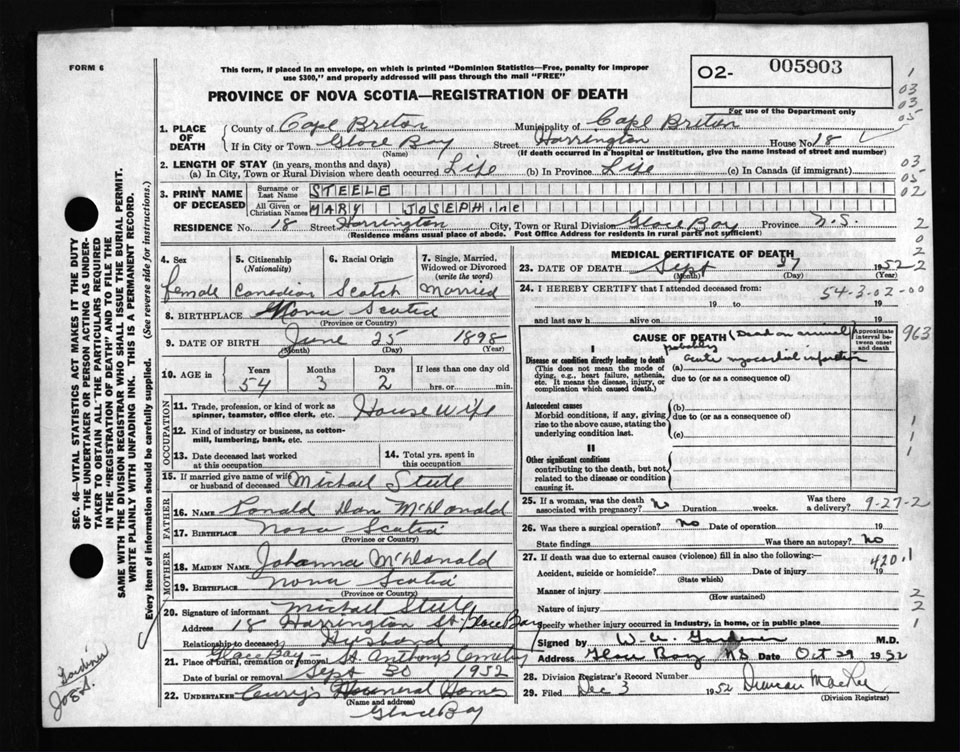 FORM 6
This form, if placed in an envelope, on which is printed "Dominion Statistics—Free, penalty for improper
use $300," and properly addressed will pass through the mail "FREE"
02- 005903
For use of the Department only
PROVINCE OF NOVA SCOTIA—REGISTRATION OF DEATH
1. PLACE OF DEATH
County of Cape Breton Municipality of Cape Breton
If in City or Town Glace Bay Street Harrington House No. 18
(Name) (If death occurred in a hospital or institution, give the name instead of street and number)
2. LENGTH OF STAY (in years, months and days)
(a) In City, Town or Rural Division where death occurred Life (b) In Province Life (c) In Canada (if immigrant)
3. PRINT NAME OF DECEASED
Surname or Last Name STEELE
All Given or Christian Names MARY JOSEPHINE
RESIDENCE No. 18 Street Harrington City, Town or Rural Division Glace Bay Province N.S.
(Residence means usual place of abode. Post Office Address for residents in rural parts not sufficient)
4. Sex female
5. Citizenship (Nationality) Canadian
6. Racial Origin Scotch
7. Single, Married, Widowed or Divorced (write the word) Married
8. BIRTHPLACE Nova Scotia
(Province or Country)
9. DATE OF BIRTH June 25 1898
(Month) (Day) (Year)
10. AGE in Years 54 Months 3 Days 2 If less than one day old hrs. or min.
OCCUPATION
11. Trade, profession, or kind of work as spinner, teamster, office clerk, etc. House Wife
12. Kind of industry or business, as cotton-mill, lumbering, bank, etc.
13. Date deceased last worked at this occupation
14. Total yrs. spent in this occupation
15. If married give name of wife or husband of deceased Michael Steele
FATHER
16. NAME Ronald Dan McDonald
17. BIRTHPLACE Nova Scotia
(Province or Country)
MOTHER
18. MAIDEN NAME Johanna McDonald
19. BIRTHPLACE Nova Scotia
(Province or Country)
20. Signature of informant Michael Steele
Address 18 Harrington St. Glace Bay
Relationship to deceased Husband
Glace Bay — St Anthony's Cemetery
21. Place of burial, cremation or removal
Date of burial or removal Sept 30 1952
22. UNDERTAKER Curry's Funeral Home
(Name and address)
Glace Bay
MEDICAL CERTIFICATE OF DEATH
23. DATE OF DEATH Sept 27 1952
(Month) (Day) (Year)
24. I HEREBY CERTIFY that I attended deceased from:
54-3-02-00
19 to 19
and last saw h alive on 19
CAUSE OF DEATH (Dead on arrival)
Approximate interval between onset and death
I
Disease or condition directly leading to death
(This does not mean the mode of dying, e.g., heart failure, asthenia, etc. It means the disease, injury, or complication which caused death.)
(a) probably acute myocardial infarction
due to (or as a consequence of)
Antecedent causes
Morbid conditions, if any, giving rise to the above cause, stating the underlying condition last.
(b)
due to (or as a consequence of)
(c)
II
Other significant conditions
contributing to the death, but not related to the disease or condition causing it.
25. If a woman, was the death associated with pregnancy? No Duration weeks. Was there a delivery? 9-27-2
26. Was there a surgical operation? No Date of operation 19
State findings Was there an autopsy? No
27. If death was due to external causes (violence) fill in also the following:—
420.1
Accident, suicide or homicide? Date of injury 19
(State which)
Manner of injury
(How sustained)
Nature of injury
Specify whether injury occurred in industry, in home, or in public place
Signed by W. A. Gardiner M.D.
Address Glace Bay NS Date Oct 29 1952
28. Division Registrar's Record Number
29. Filed Dec 3 1952 Duncan MacRae
(Division Registrar)
SEC. 46—VITAL STATISTICS ACT MAKES IT THE DUTY
OF THE UNDERTAKER OR PERSON ACTING AS UNDER-
TAKER TO OBTAIN ALL THE PARTICULARS REQUIRED
IN THE "REGISTRATION OF DEATH" AND TO FILE THE
SAME WITH THE DIVISION REGISTRAR WHO SHALL ISSUE THE BURIAL PERMIT.
WRITE PLAINLY WITH UNFADING INK. THIS IS A PERMANENT RECORD.
Every item of information should be carefully supplied. (See reverse side for instructions.)
Gardiner
1
03
03
05
03
05
02
2
0
2
2
963
1
1
1
2
2